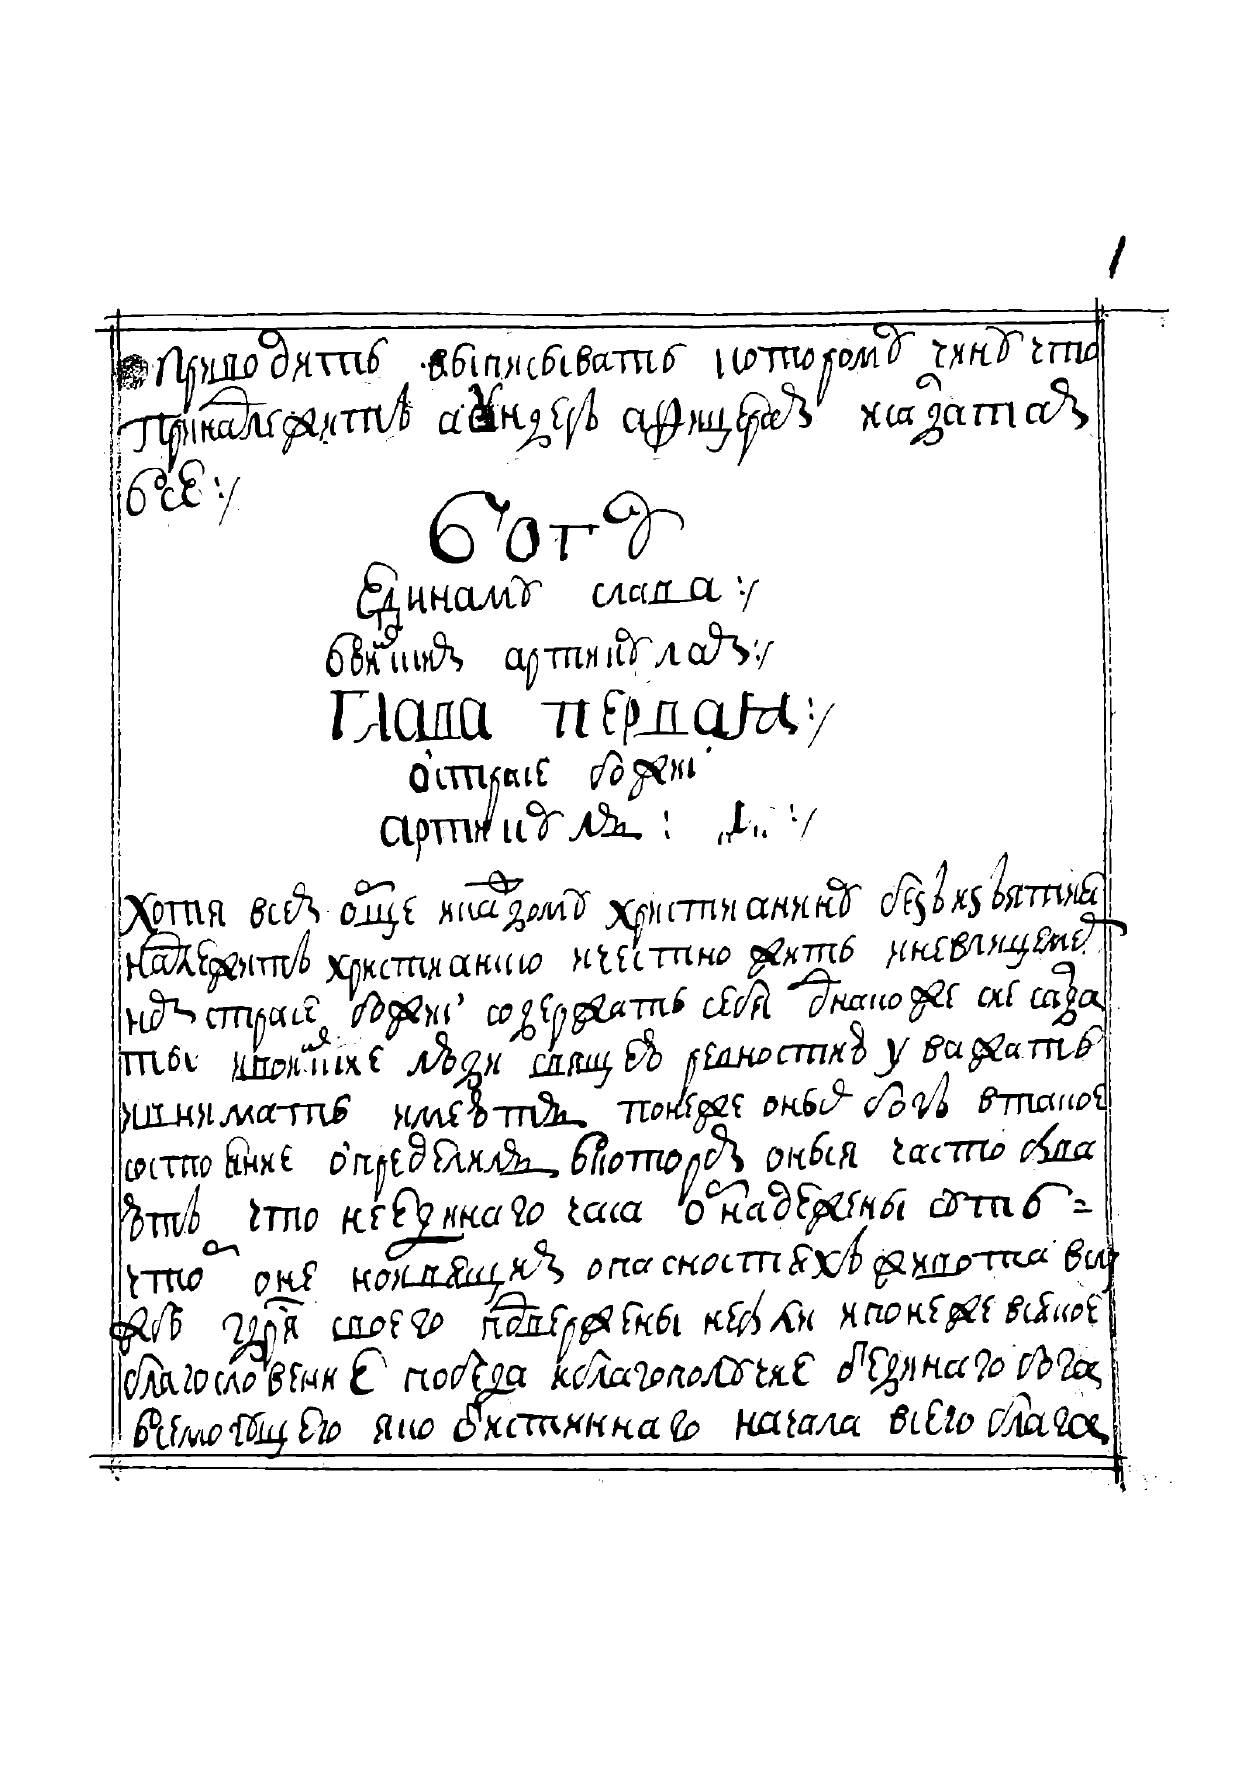 1
приводить выписывать которому чину что
принадлежитъ аундеръ афицерам и салдатам
все :/
Богу
Единаму слава :/
Воинским артикулам :/
Глава первая :/
о страсе божиї
артикул : 1 :/
Хотя всем обще и каждому християнину без изъятия
надлежитъ християнско и честно жить и не в лицемер
ном страсе божиї содержать себя однако же сие салда
ты и воинские люди с вящею ревностию уважать
и внимать имеют понеже оных богъ в такое
состояние определил в котором оныя часто быва
ютъ что не единаго часа обнадежены суть =
чтоб оне в наивящих опасностях живота в слу
жбе гдря своего подвержены не были и понеже всякое
благословение победа и благополучие от единаго бога
всемогущего яко от истиннаго начала всего блага